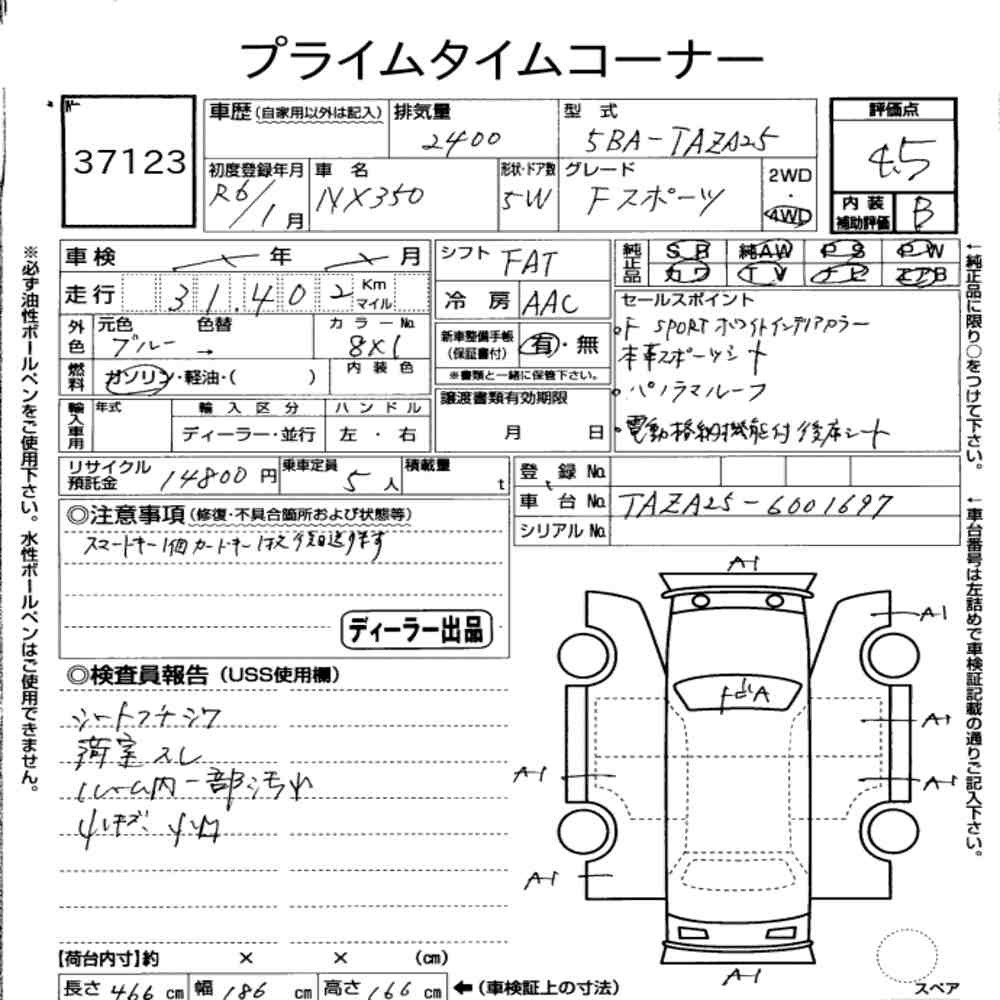 プライムタイムコーナー
No.
37123
車歴 (自家用以外は記入)
排気量
2400
型式
5BA-TAZA25
評価点
4.5
初度登録年月
R6/1月
車名
NX350
形状・ドア数
5W
グレード
Fスポーツ
2WD
・
4WD
内装
補助評価
B
車検 年 月
シフト FAT
純正品
SR 純AW PS PW
カワ TV ナビ エアB
走行 31.402 Km マイル
冷房 AAC
セールスポイント
・F SPORTホワイトインテリアカラー
本革スポーツシート
・パノラマルーフ
・電動格納機能付後席シート
外色
元色 ブルー →
色替
カラーNo. 8X1
新車整備手帳
(保証書付)
有・無
※書類と一緒に保管下さい。
燃料 ガソリン・軽油・( )
内装色
輸入車用
年式
輸入区分
ディーラー・並行
ハンドル
左・右
譲渡書類有効期限
月 日
リサイクル
預託金 14800円
乗車定員 5人
積載量 t
登録No.
車台No. TAZA25-6001697
シリアルNo.
◎注意事項(修復・不具合箇所および状態等)
スマートキー1個カードキー1枚後日送ります
ディーラー出品
◎検査員報告(USS使用欄)
シートコゲ シワ
荷室スレ
ルーム内一部汚れ
A1
A1
A1
A1
A1
A1
A1
スペア
【荷台内寸】約 × × (cm)
長さ 466 cm 幅 186 cm 高さ 166 cm ←(車検証上の寸法)
※必ず油性ボールペンをご使用下さい。水性ボールペンはご使用できません。
←純正品に限り○をつけて下さい。
←車台番号は左詰めで車検証記載の通りご記入下さい。